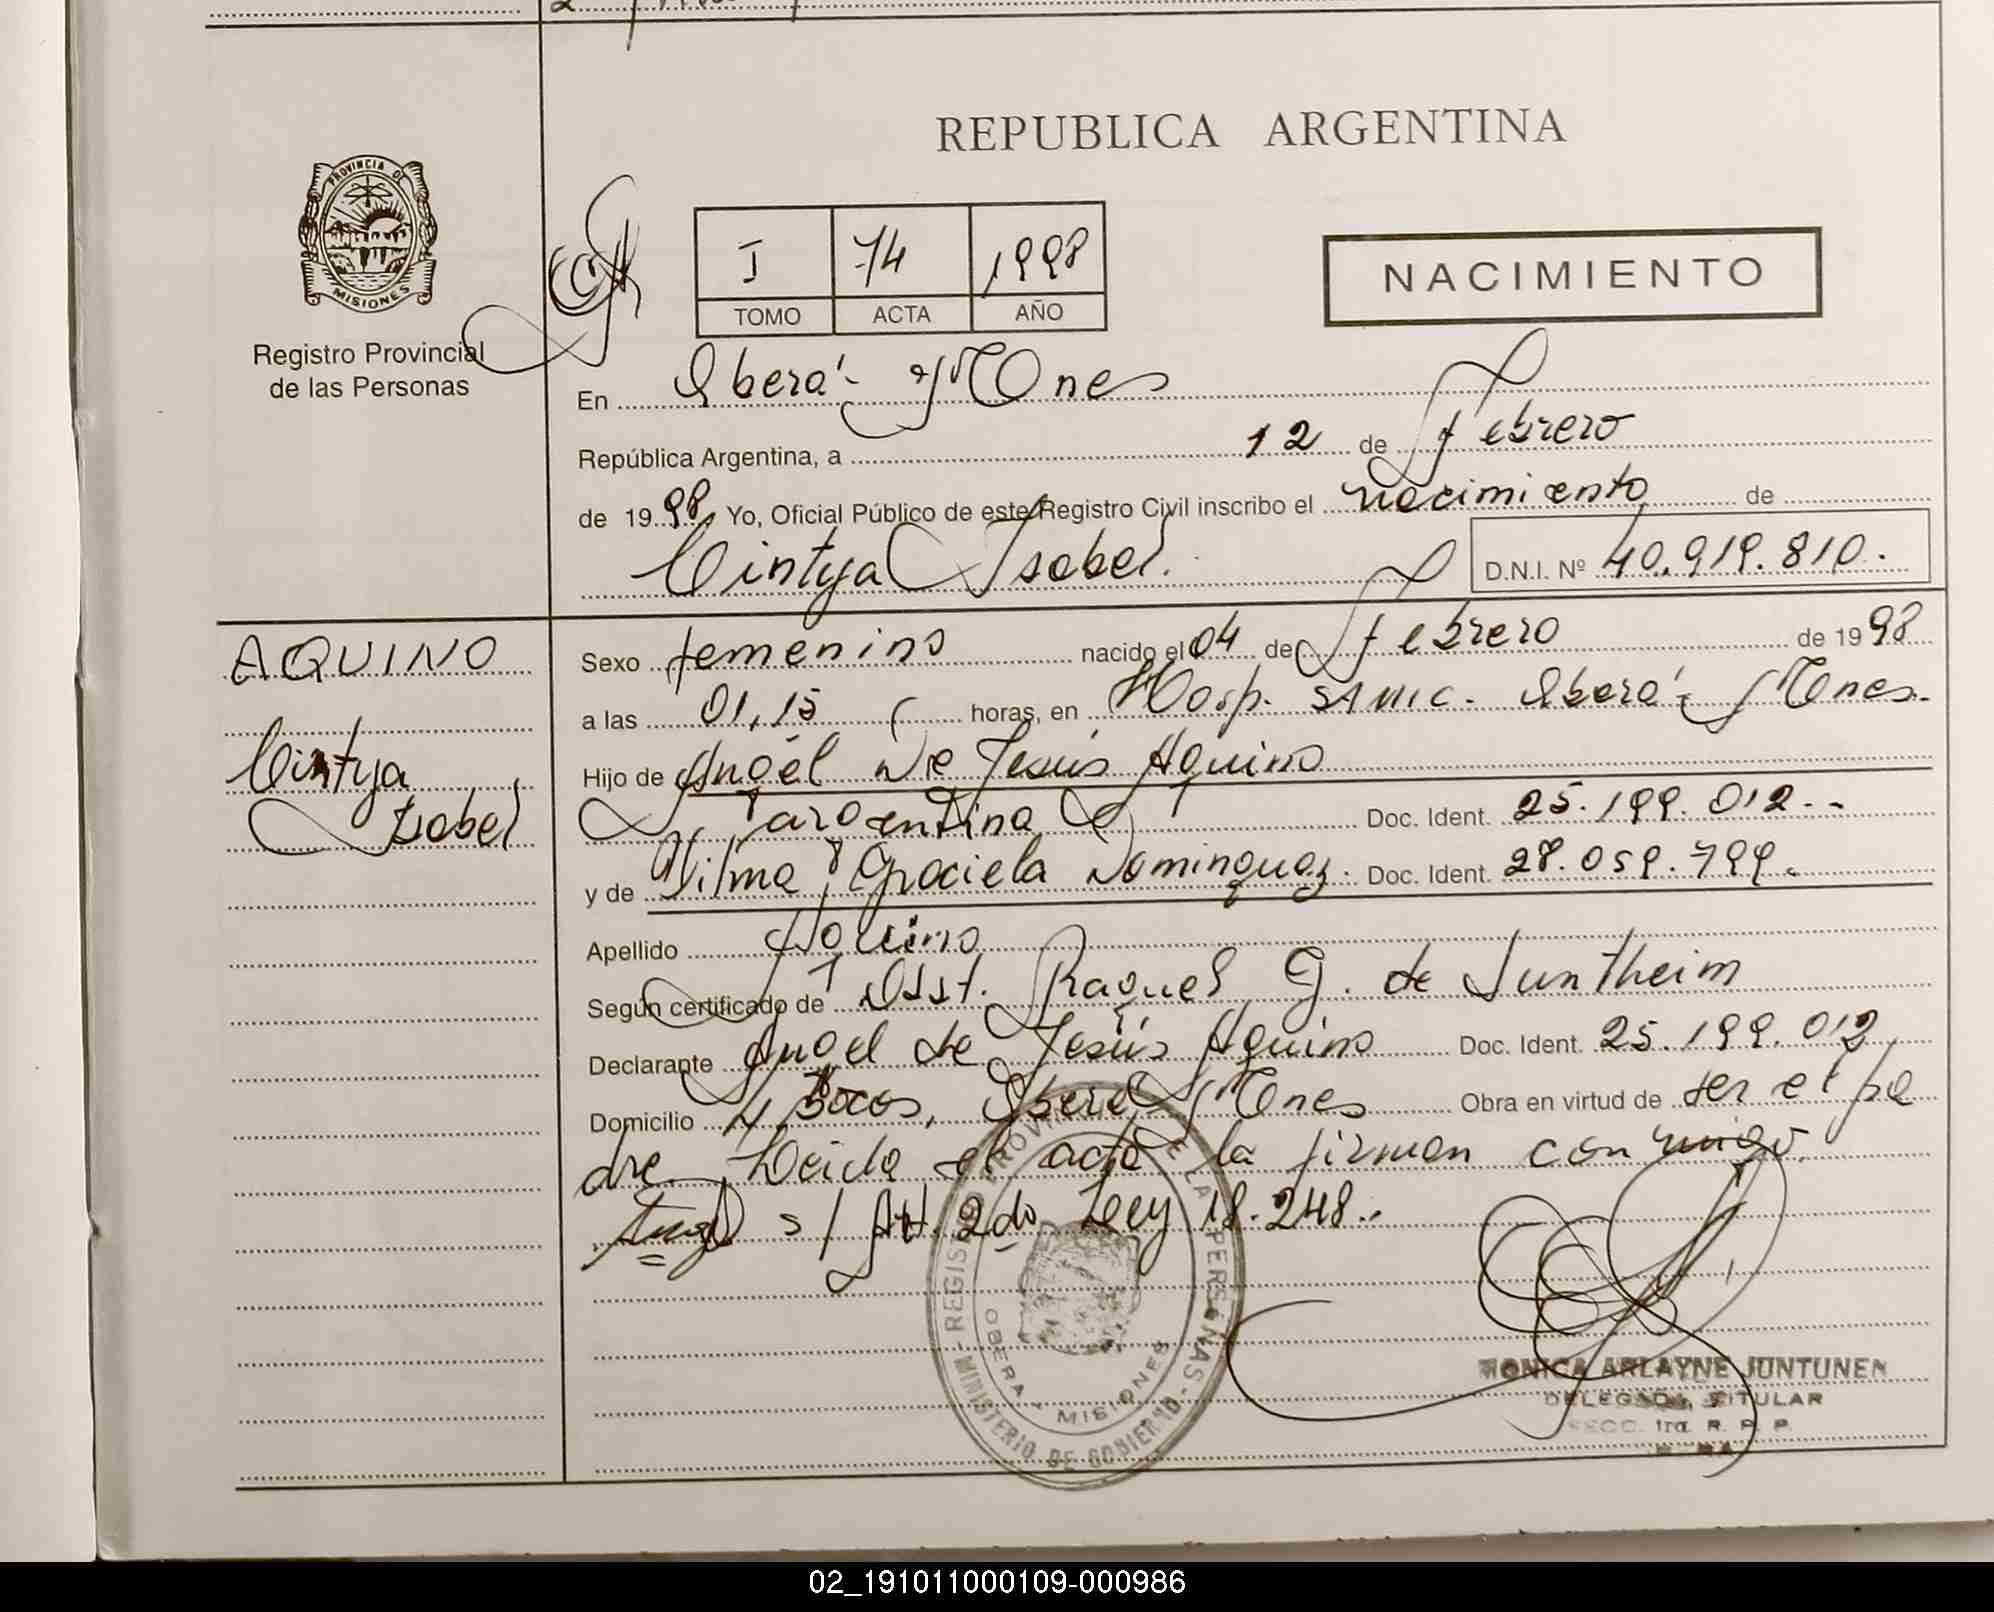 REPUBLICA ARGENTINA
PROVINCIA DE
MISIONES
Registro Provincial
de las Personas
I 74 1998
TOMO ACTA AÑO
NACIMIENTO
En Oberá - Mnes
República Argentina, a 12 de Febrero
de 1998 Yo, Oficial Público de este Registro Civil inscribo el nacimiento de
Cintya Isabel. D.N.I. Nº 40.919.810.
AQUINO
Cintya
Isabel
Sexo femenino nacido el 04 de Febrero de 1998
a las 01,15 horas, en Hosp. SAMIC. Oberá - Mnes.
Hijo de Angel De Jesús Aquino
argentina Doc. Ident. 25.199.012.-
y de Vilma Graciela Dominguez. Doc. Ident. 28.059.799.
Apellido Aquino
Según certificado de Obst. Raquel G. de Suntheim
Declarante Angel de Jesús Aquino Doc. Ident. 25.199.012
Domicilio 4 Bocas, Oberá, Mnes Obra en virtud de ser el pa
dre. Leida el acta la firman conmigo.
s/ Art. 2do Ley 18.248.
REGISTRO PROVINCIAL DE LAS PERSONAS
OBERA - MISIONES
MINISTERIO DE GOBIERNO
MONICA ARLAYNE JUNTUNEN
DELEGADA TITULAR
SECC. 1ra. R. P. P.
02_191011000109-000986